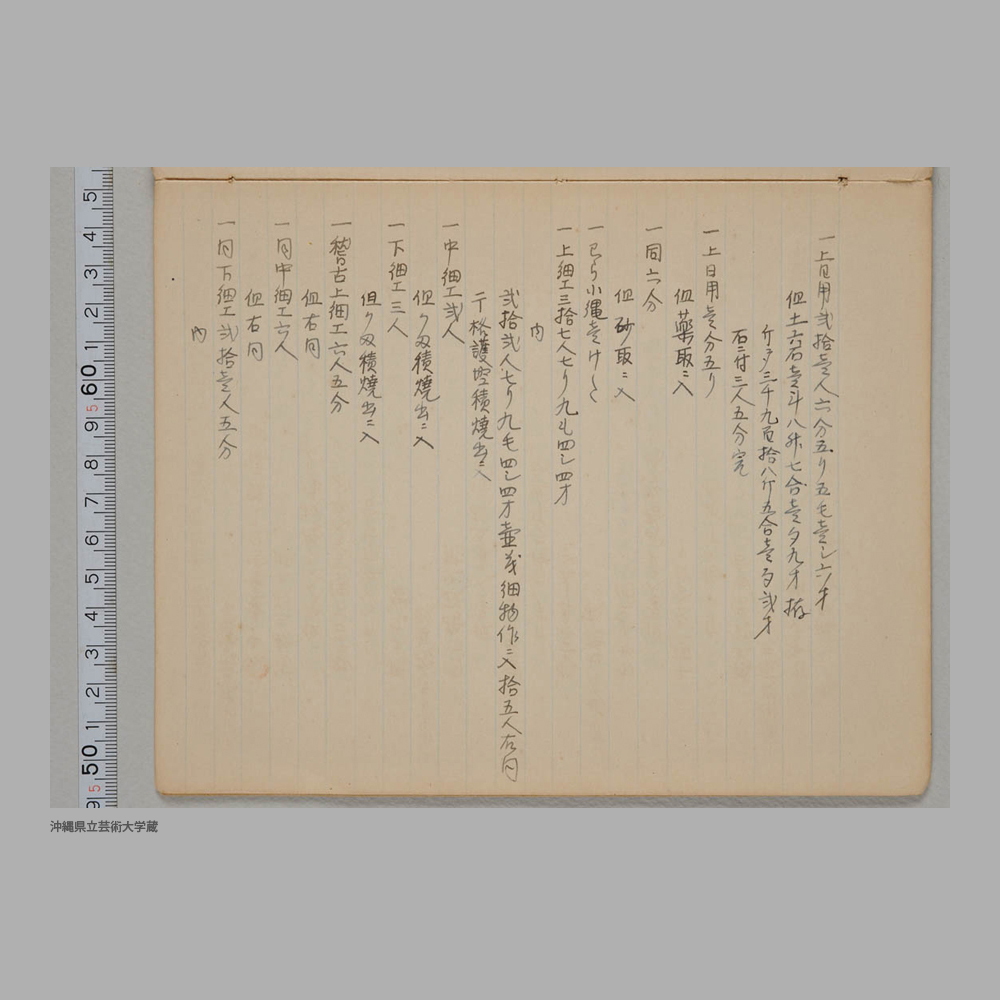 一上日用弐拾壱人六分五り五毛壱シ六才
但土六石壱斗八舛七合壱夕九才拵
斤〆三千九百拾八斤五合壱勺弐才
石ニ付三人五分完
一上日用壱分五り
但薬取ニ入
一同六分
但砂取ニ入
一巳ら小縄壱け
一上細工三拾七人七り九毛四シ四才
内
弐拾弐人七り九毛四シ四才壷并細物作ニ入拾五人右同
干格護壁積焼出ニ入
一中細工弐人
但積焼出ニ入
一下細工三人
但積焼出ニ入
一稽古上細工六人五分
但右同
一同中細工六人
但右同
一同下細工弐拾壱人五分
内
5 4 3 2 1 60 9 8 7 6 5 4 3 2 1 50 9
沖縄県立芸術大学蔵